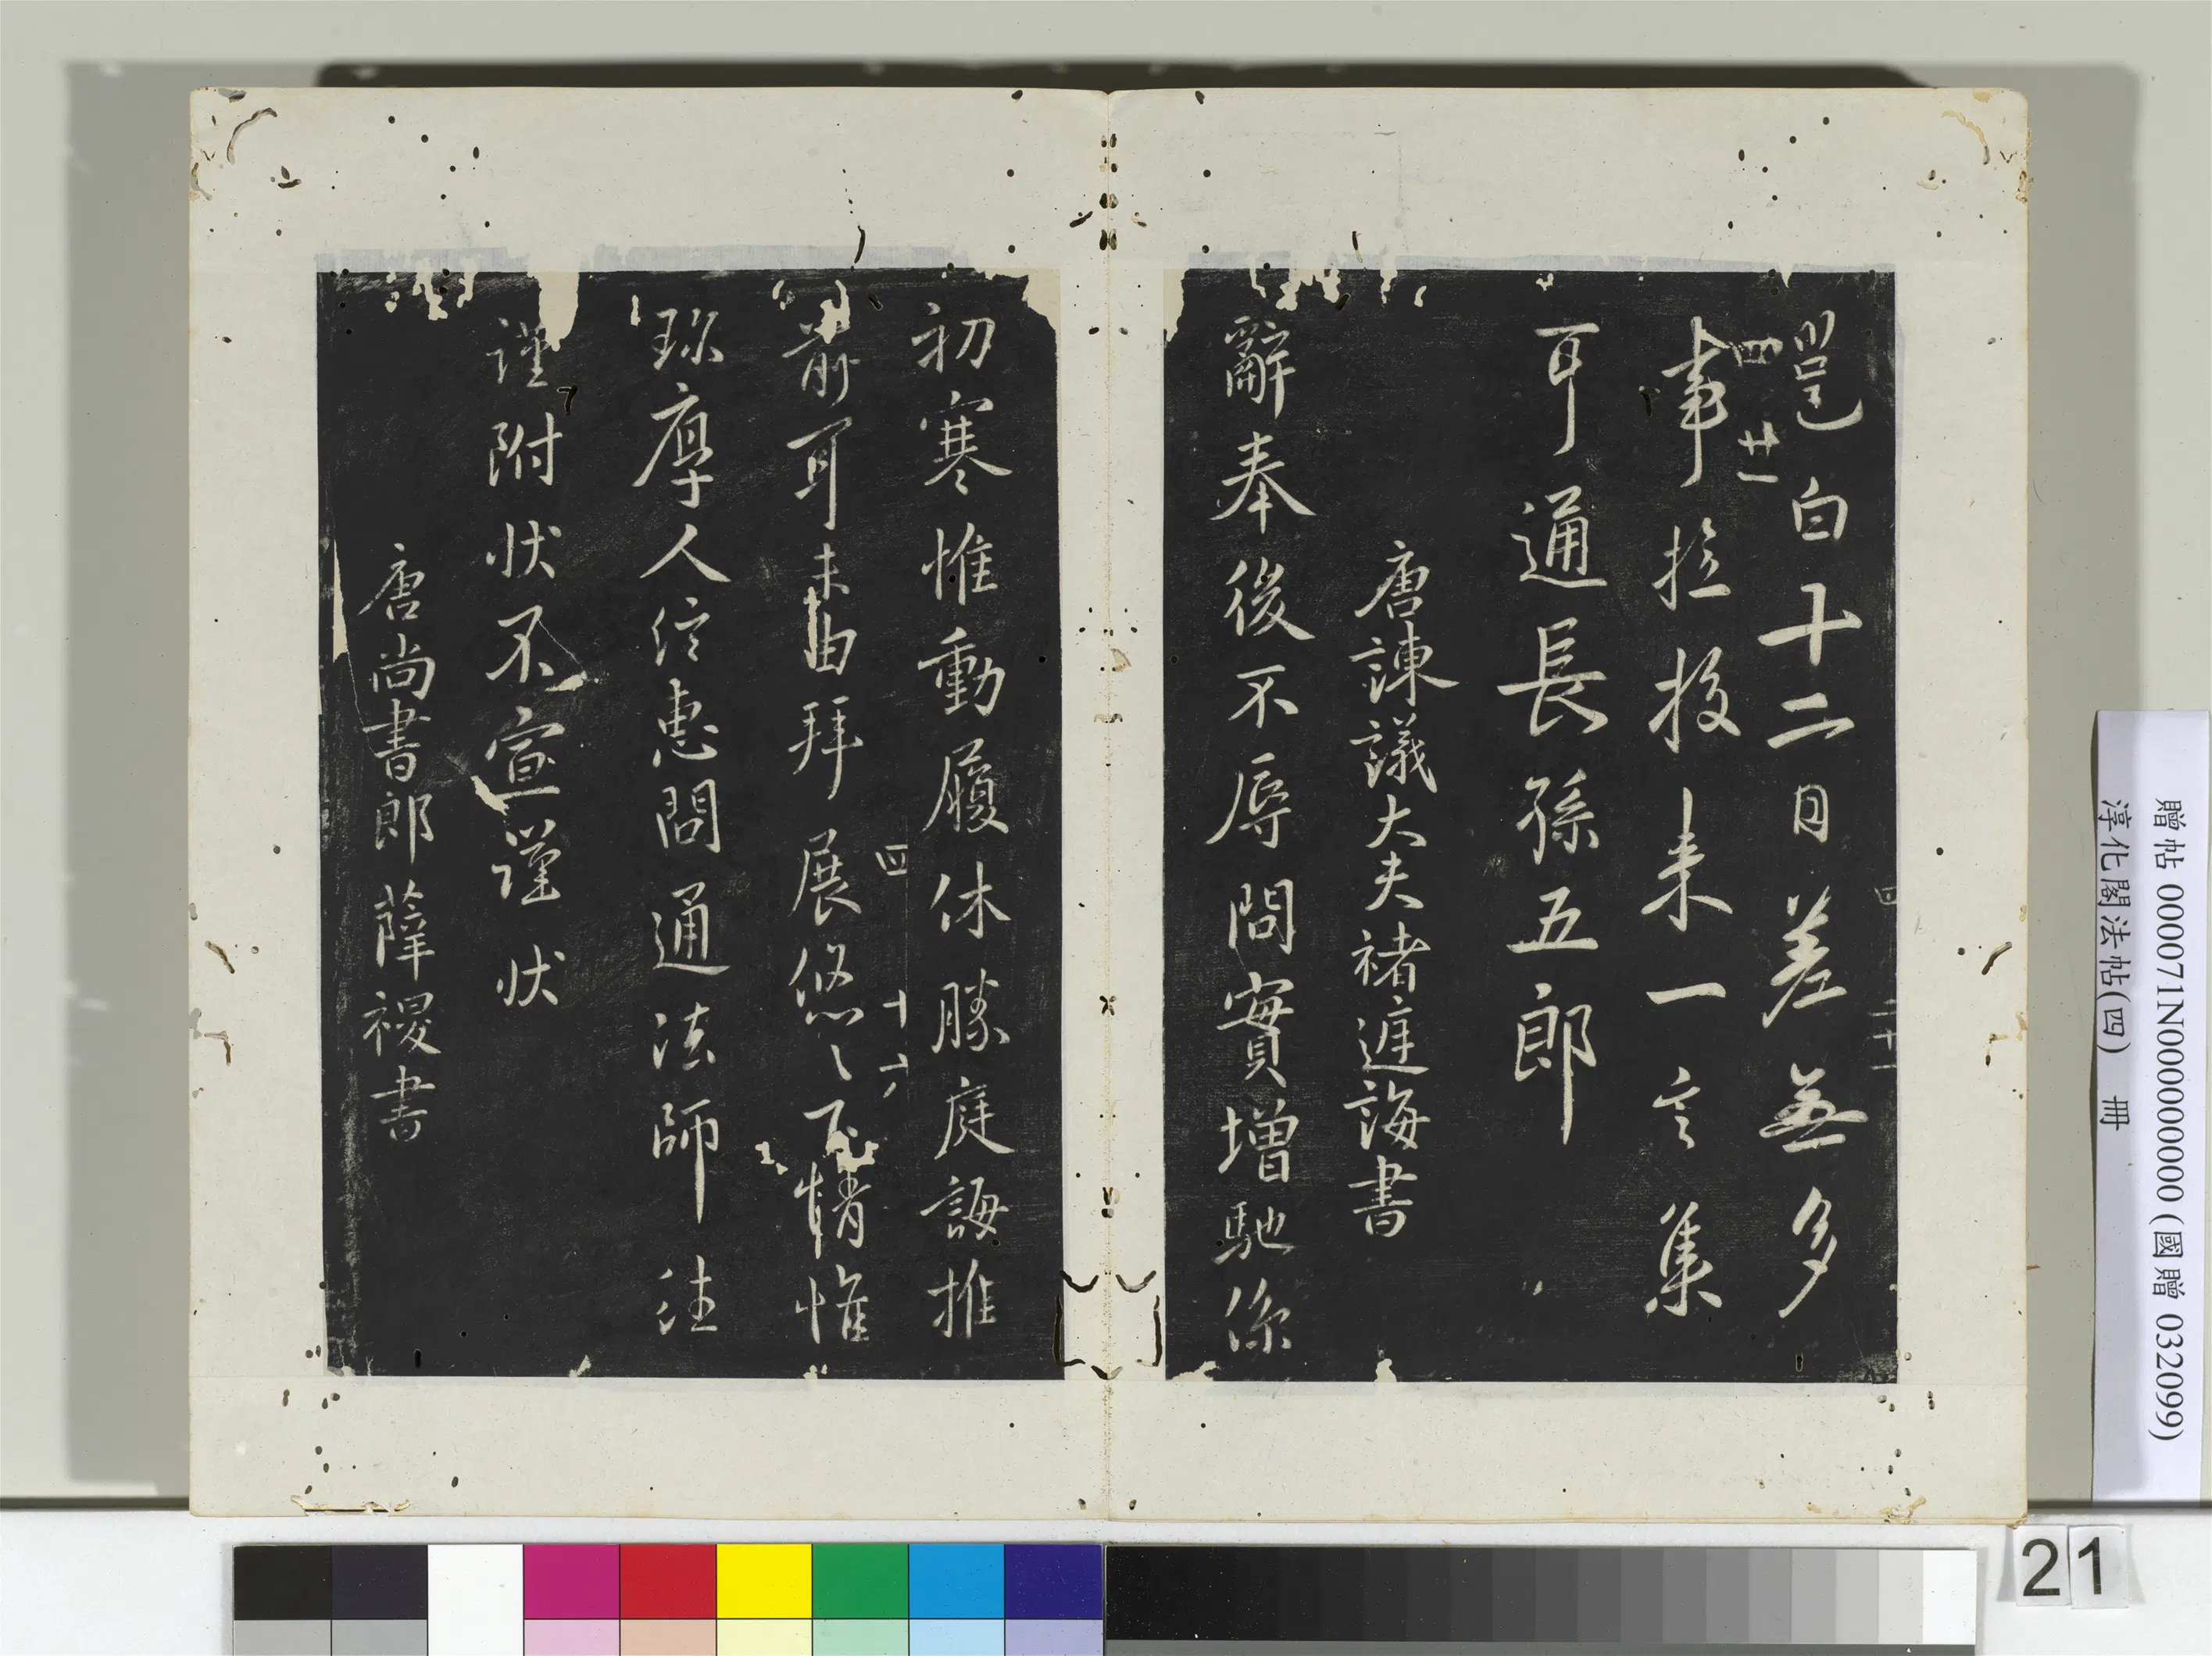 邕白十二日差無多
四 廿一
事拴投来一言集
耳通長孫五郎
唐諫議大夫褚遂誨書
辭奉後不辱問實增馳係
初寒惟動履休勝庭誨推
四 十六
前耳未由拜展悠〻下情惟
珎厚人信惠問通法師往
謹附状不宣謹状
唐尚書郎薛稷書
四 二十一
贈帖 000071N000000000 (國贈 032099)
淳化閣法帖(四) 冊
21